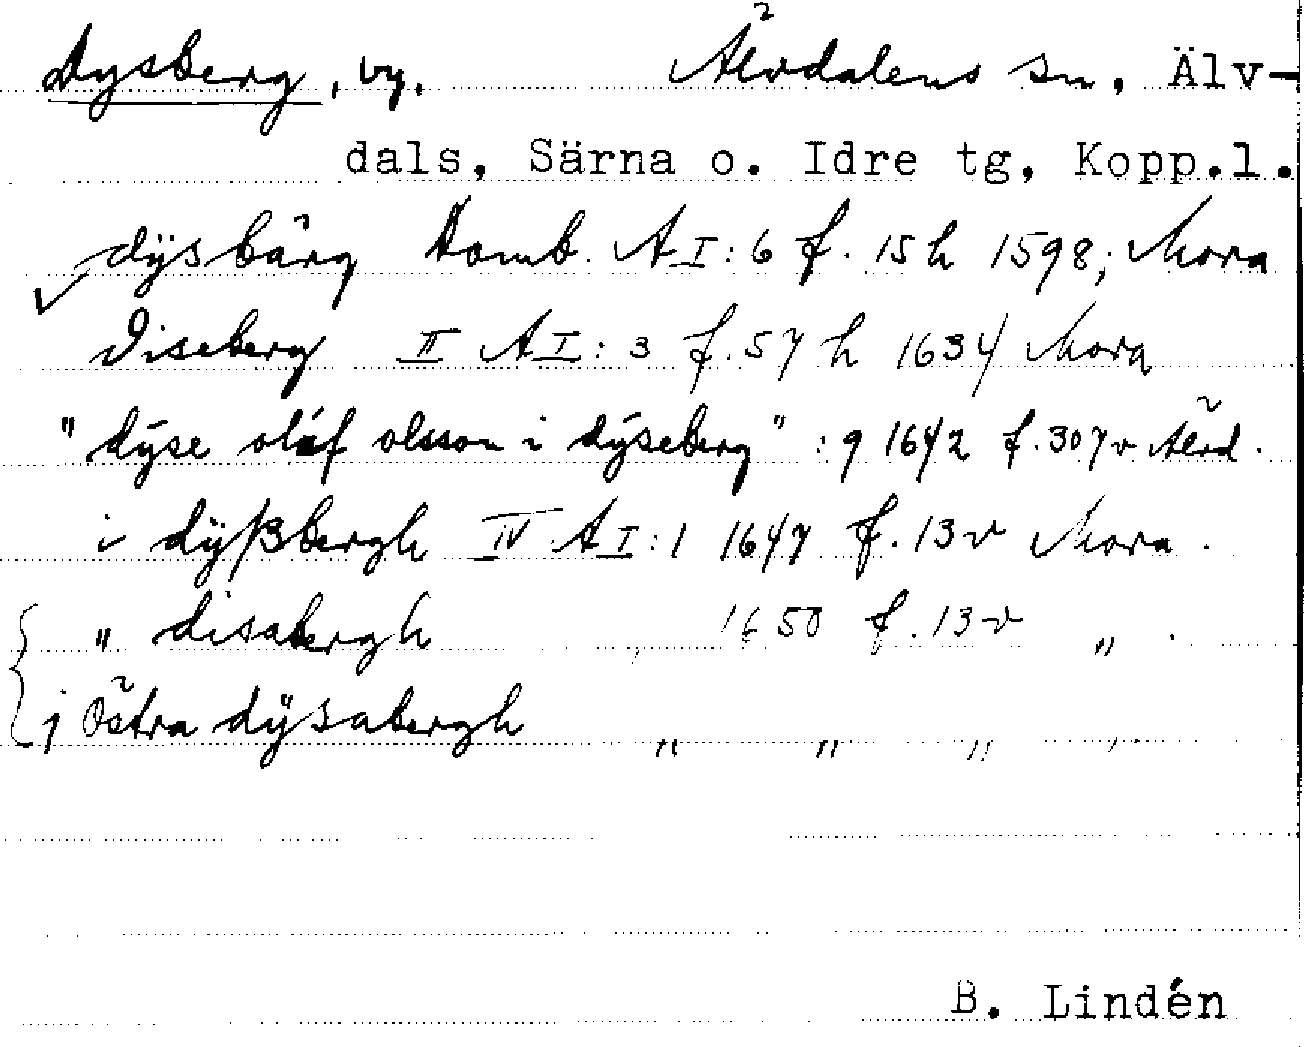 Dysberg, by. Älvdalens sn, Älv-
dals, Särna o. Idre tg, Kopp.l.
dÿsbärg Domb. A I: 6 f. 15 h 1598; Mora
Diseberg II A I: 3 f. 57 h 1634 Mora
" dÿse olåf olsson i dÿseberg" : 9 1642 f. 307v Älvd.
i dÿßbergh IV A I: 1 1647 f. 13v Mora.
" disabergh " 1650 f. 13v " .
j Östra dÿsabergh " " " " .
B. Lindén